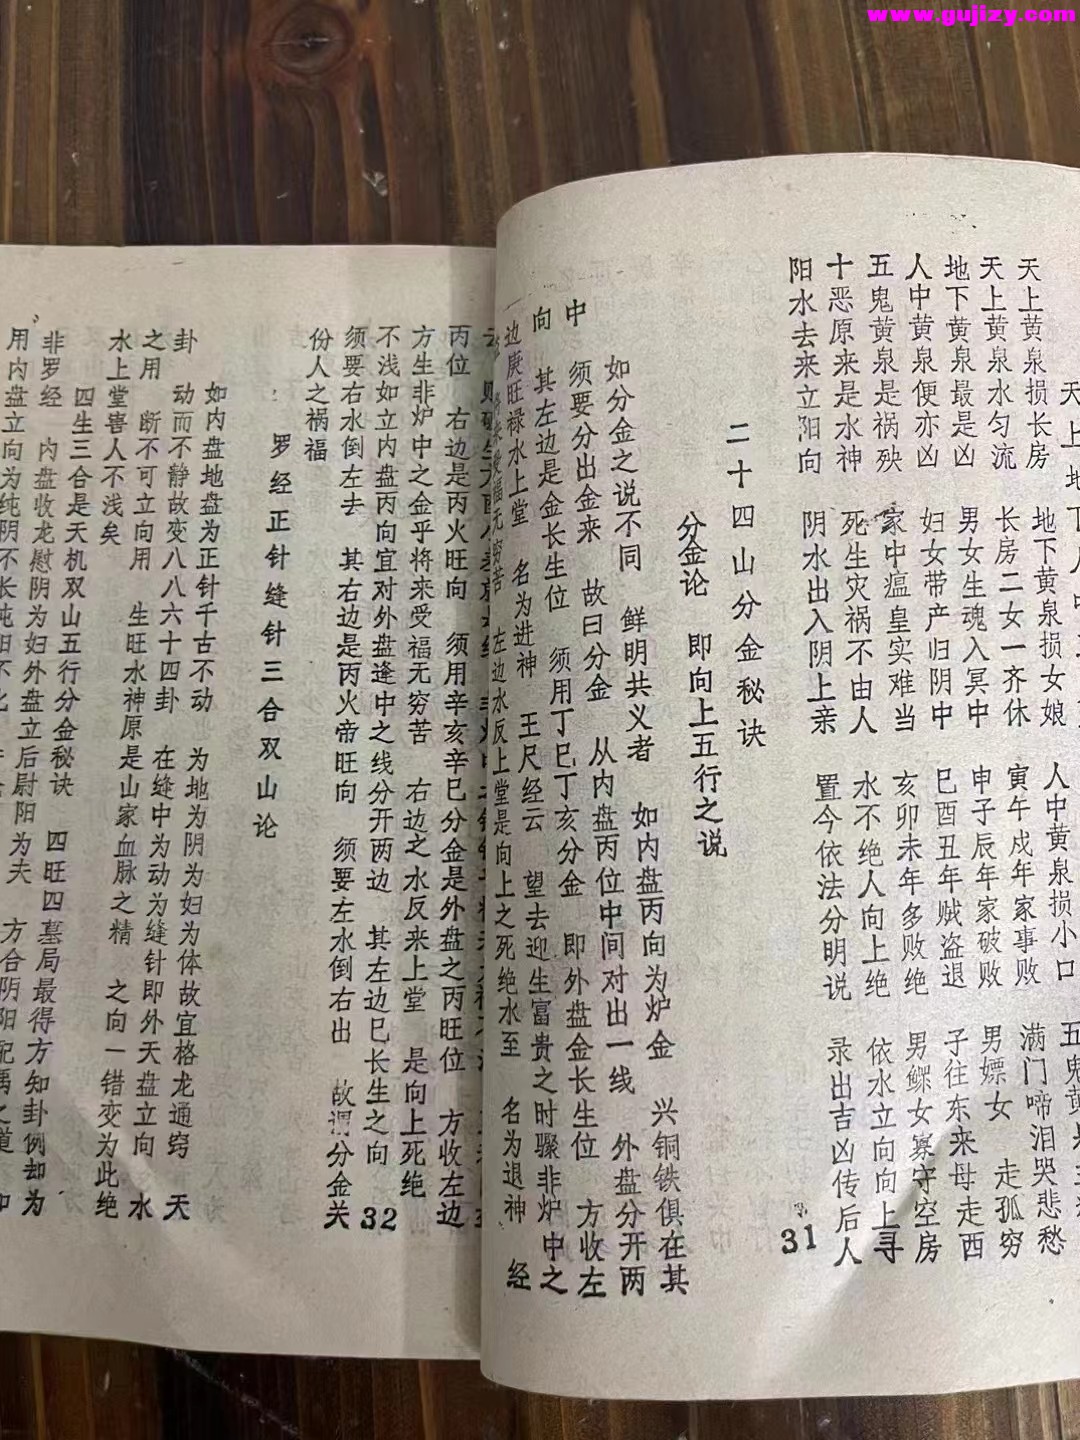 天上地下人中
天上黄泉损长房 地下黄泉损女娘 人中黄泉损小口 五鬼黄
天上黄泉水匀流 长房二女一齐休 寅午戌年家事败 满门啼泪哭悲愁
地下黄泉最是凶 男女生魂入冥中 申子辰年家破败 男嫖女 走孤穷
人中黄泉便亦凶 妇女带产归阴中 巳酉丑年贼盗退 子往东来母走西
五鬼黄泉是祸殃 家中瘟皇实难当 亥卯未年多败绝 男鳏女寡守空房
十恶原来是水神 死生灾祸不由人 水不绝人向上绝 依水立向向上寻
阳水去来立阳向 阴水出入阴上亲 置今依法分明说 录出吉凶传后人
31
二十四山分金秘诀
分金论 即向上五行之说
如分金之说不同 鲜明共义者 如内盘丙向为炉金 兴铜铁俱在其
中 须要分出金来 故曰分金 从内盘丙位中间对出一线 外盘分开两
向 其左边是金长生位 须用丁巳丁亥分金 即外盘金长生位 方收左
边庚旺禄水上堂 名为进神 王尺经云 望去迎生富贵之时骤非炉中之
将来受福无穷苦 左边水反上堂是向上之死绝水至 名为退神 经
丙位 右边是丙火旺向 须用辛亥辛巳分金是外盘之丙旺位 方收左边
方生非炉中之金乎将来受福无穷苦 右边之水反来上堂 是向上死绝
不浅如立内盘丙向宜对外盘逢中之线分开两边 其左边巳长生之向
须要右水倒左去 其右边是丙火帝旺向 须要左水倒右出 故谓分金关
份人之祸福
32
罗经正针缝针三合双山论
如内盘地盘为正针千古不动 为地为阴为妇为体故宜格龙通窍 天
卦 动而不静故变八八六十四卦 在缝中为动为缝针即外天盘立向 水
之用 断不可立向用 生旺水神原是山家血脉之精 之向一错变为此绝
水上堂害人不浅矣
四生三合是天机双山五行分金秘诀 四旺四墓局最得方知卦例却为
非罗经 内盘收龙慰阴为妇外盘立后尉阳为夫 方合阴阳配 之道
用内盘立向为纯阴不长纯阳不化
www.gujizy.com